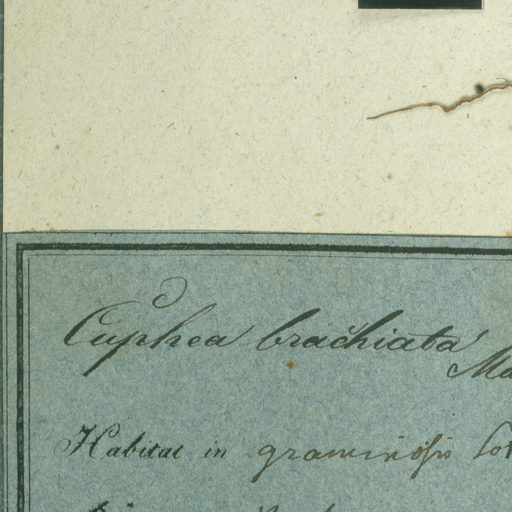 Cuphea brachiata
Habitat in graminosis